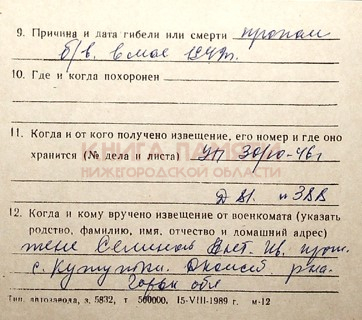 9. Причина и дата гибели или смерти пропал
б/в. в мае 1942г.
10. Где и когда похоронен
11. Когда и от кого получено извещение, его номер и где оно
хранится (№ дела и листа) УП 3010-46г
КНИГА ПАМЯТИ
НИЖЕГОРОДСКОЙ ОБЛАСТИ
12. Когда и кому вручено извещение от военкомата (указать
родство, фамилию, имя, отчество и домашний адрес)
жене Семиной Ив. прож.
с. р-на.
Горьк обл
Тип. автозавода, з. 5832, т 500000. 15-VIII-1989 г. м-12